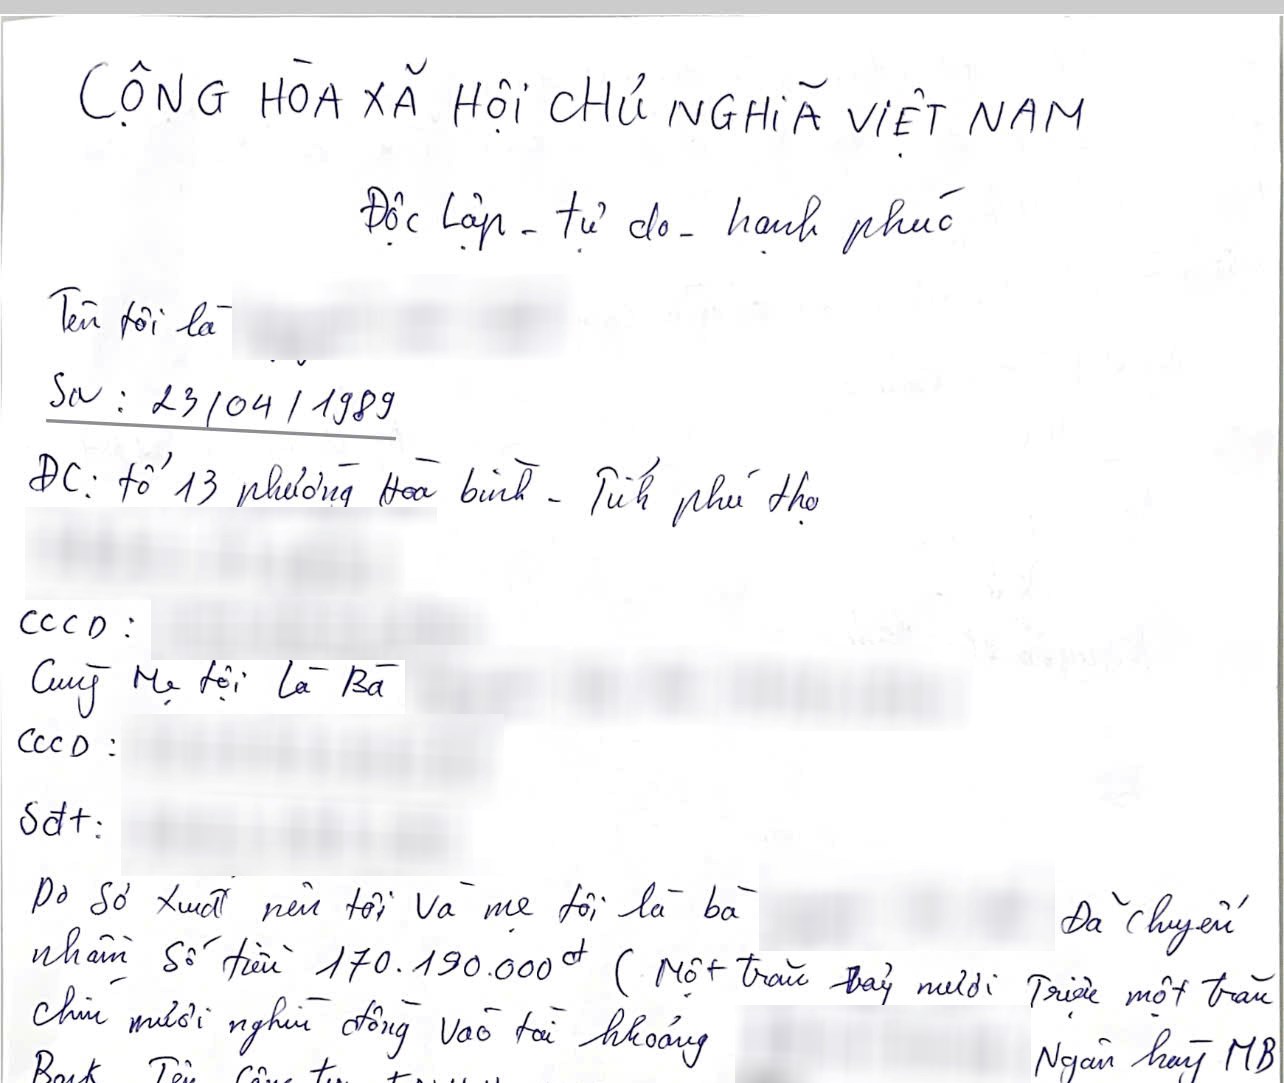 CỘNG HÒA XÃ HỘI CHỦ NGHĨA VIỆT NAM
Độc Lập - tự do - hạnh phúc
Tên tôi là
SN : 23/04/1989
ĐC: tổ 13 phường Hoà bình - Tỉnh phú thọ
CCCD :
Cùng Mẹ tôi Là Bà
CCCD :
Sđt:
Do Sơ xuất nên tôi Và mẹ tôi là bà Đã chuyển
nhầm Số tiền 170.190.000đ ( Một trăm bảy mươi Triệu một trăm
chín mươi nghìn đồng Vào tài khoảng Ngân hàng MB
Bank Tên Công ty